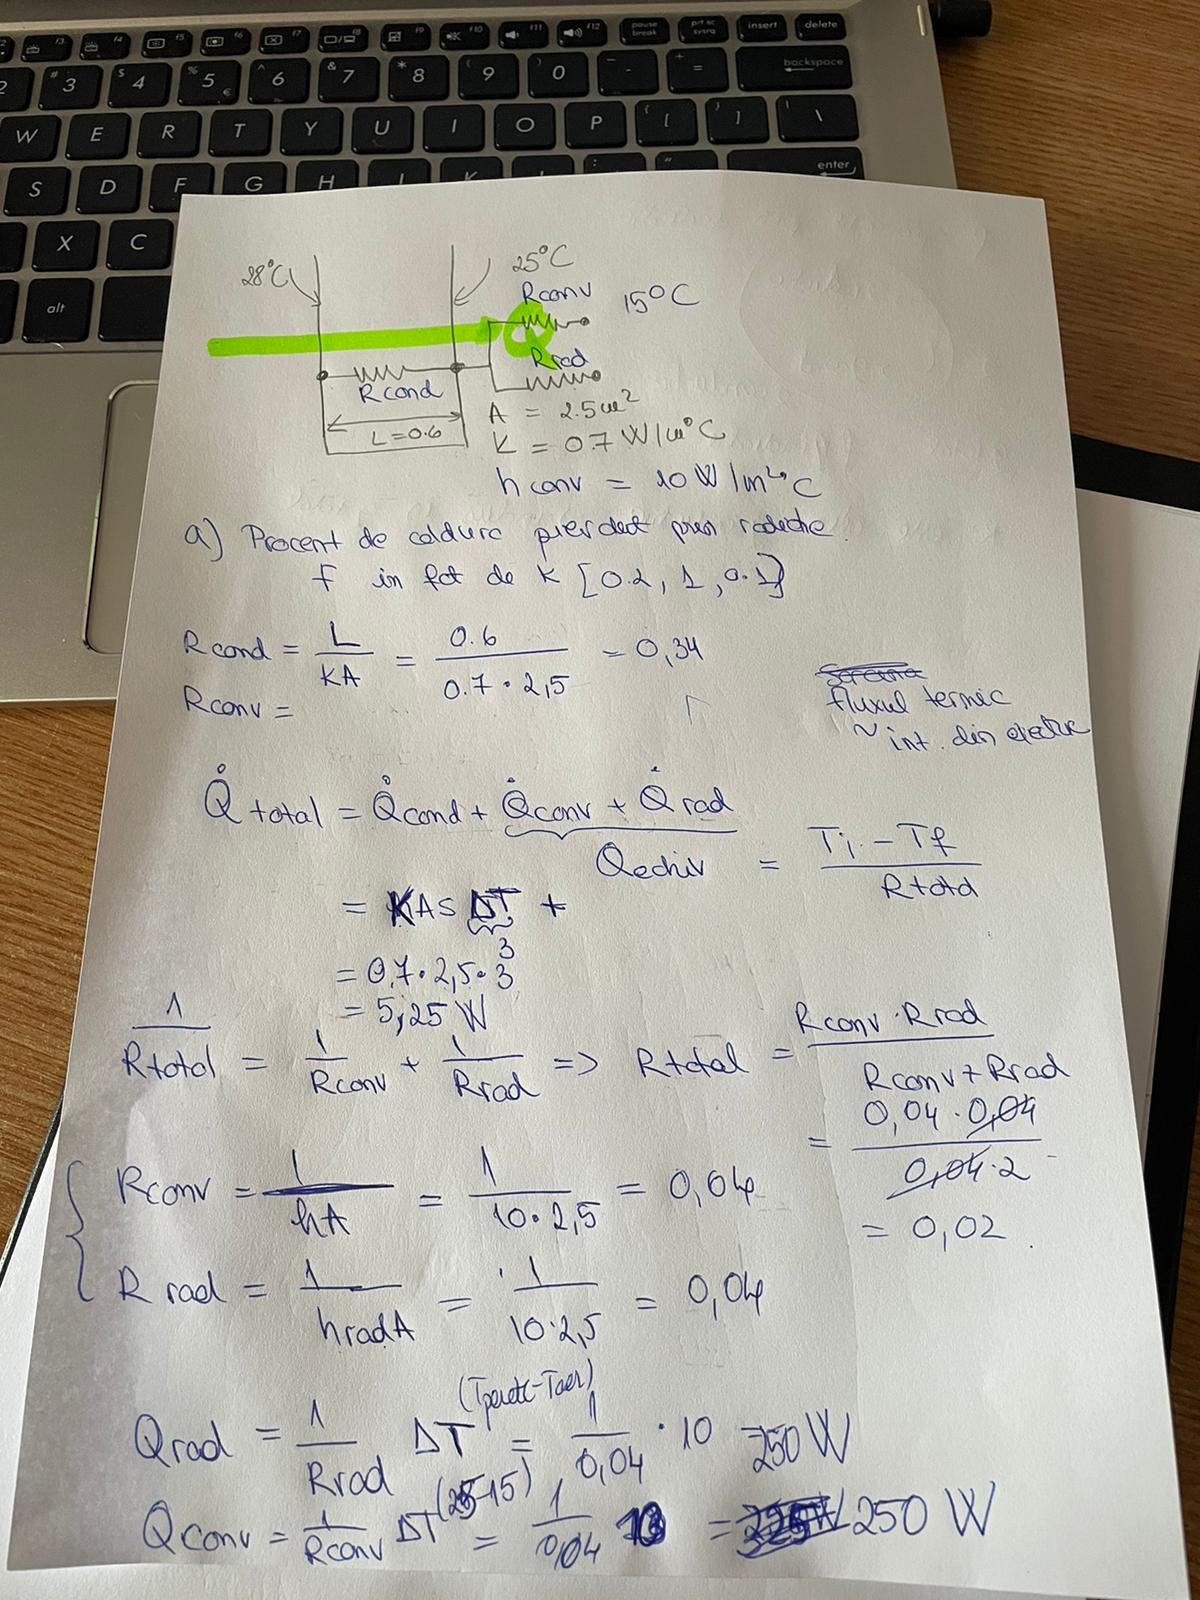 f3 f4 f5 f6 f7 f8 f9 f10 f11 f12 pause break prt sc sysrq insert delete
# 3 $ 4 % 5 € ^ 6 & 7 * 8 ( 9 ) 0 _ - + = backspace
W E R T Y U I O P { [ } ] | \
S D F G H J K L : " enter
X C
alt
28°C 25°C
Rconv 15°C
Rrad
Rcond
L=0.6
A = 2.5m²
K = 0.7 W/m°C
h conv = 10 W/m²°C
a) Procent de caldura pierdut prin radiatie.
f in fct de K [0.2, 1, 0.1]
Rcond = L/KA = 0.6/0.7·2,5 = 0,34
Rconv =
fluxul termic
~ int. din electric
Q̇ total = Q̇cond + Q̇conv + Q̇rad
Qechiv = Ti - Tf / Rtotal
= KAS ΔT +
3
= 0,7·2,5·3
= 5,25 W
1/Rtotal = 1/Rconv + 1/Rrad => Rtotal = Rconv·Rrad / Rconv+Rrad
= 0,04·0,04 / 0,04·2
= 0,02
Rconv = 1/hA = 1/10·2,5 = 0,04
R rad = 1/hradA = 1/10·2,5 = 0,04
Qrad = 1/Rrad ΔT (Tperete-Taer) = 1/0,04 · 10 = 250 W
Qconv = 1/Rconv ΔT (25-15) = 1/0,04 10 = 250 W